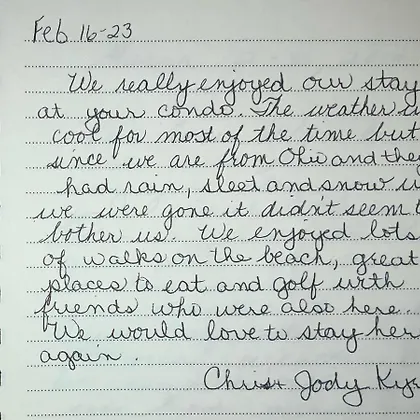 Feb 16-23
We really enjoyed our stay
at your condo. The weather
cool for most of the time but
since we are from Ohio and they
had rain, sleet and snow
we were gone it didn't seem
bother us. We enjoyed lots
of walks on the beach, great
places to eat and golf with
friends who were also here.
We would love to stay her
again.
Chris + Jody